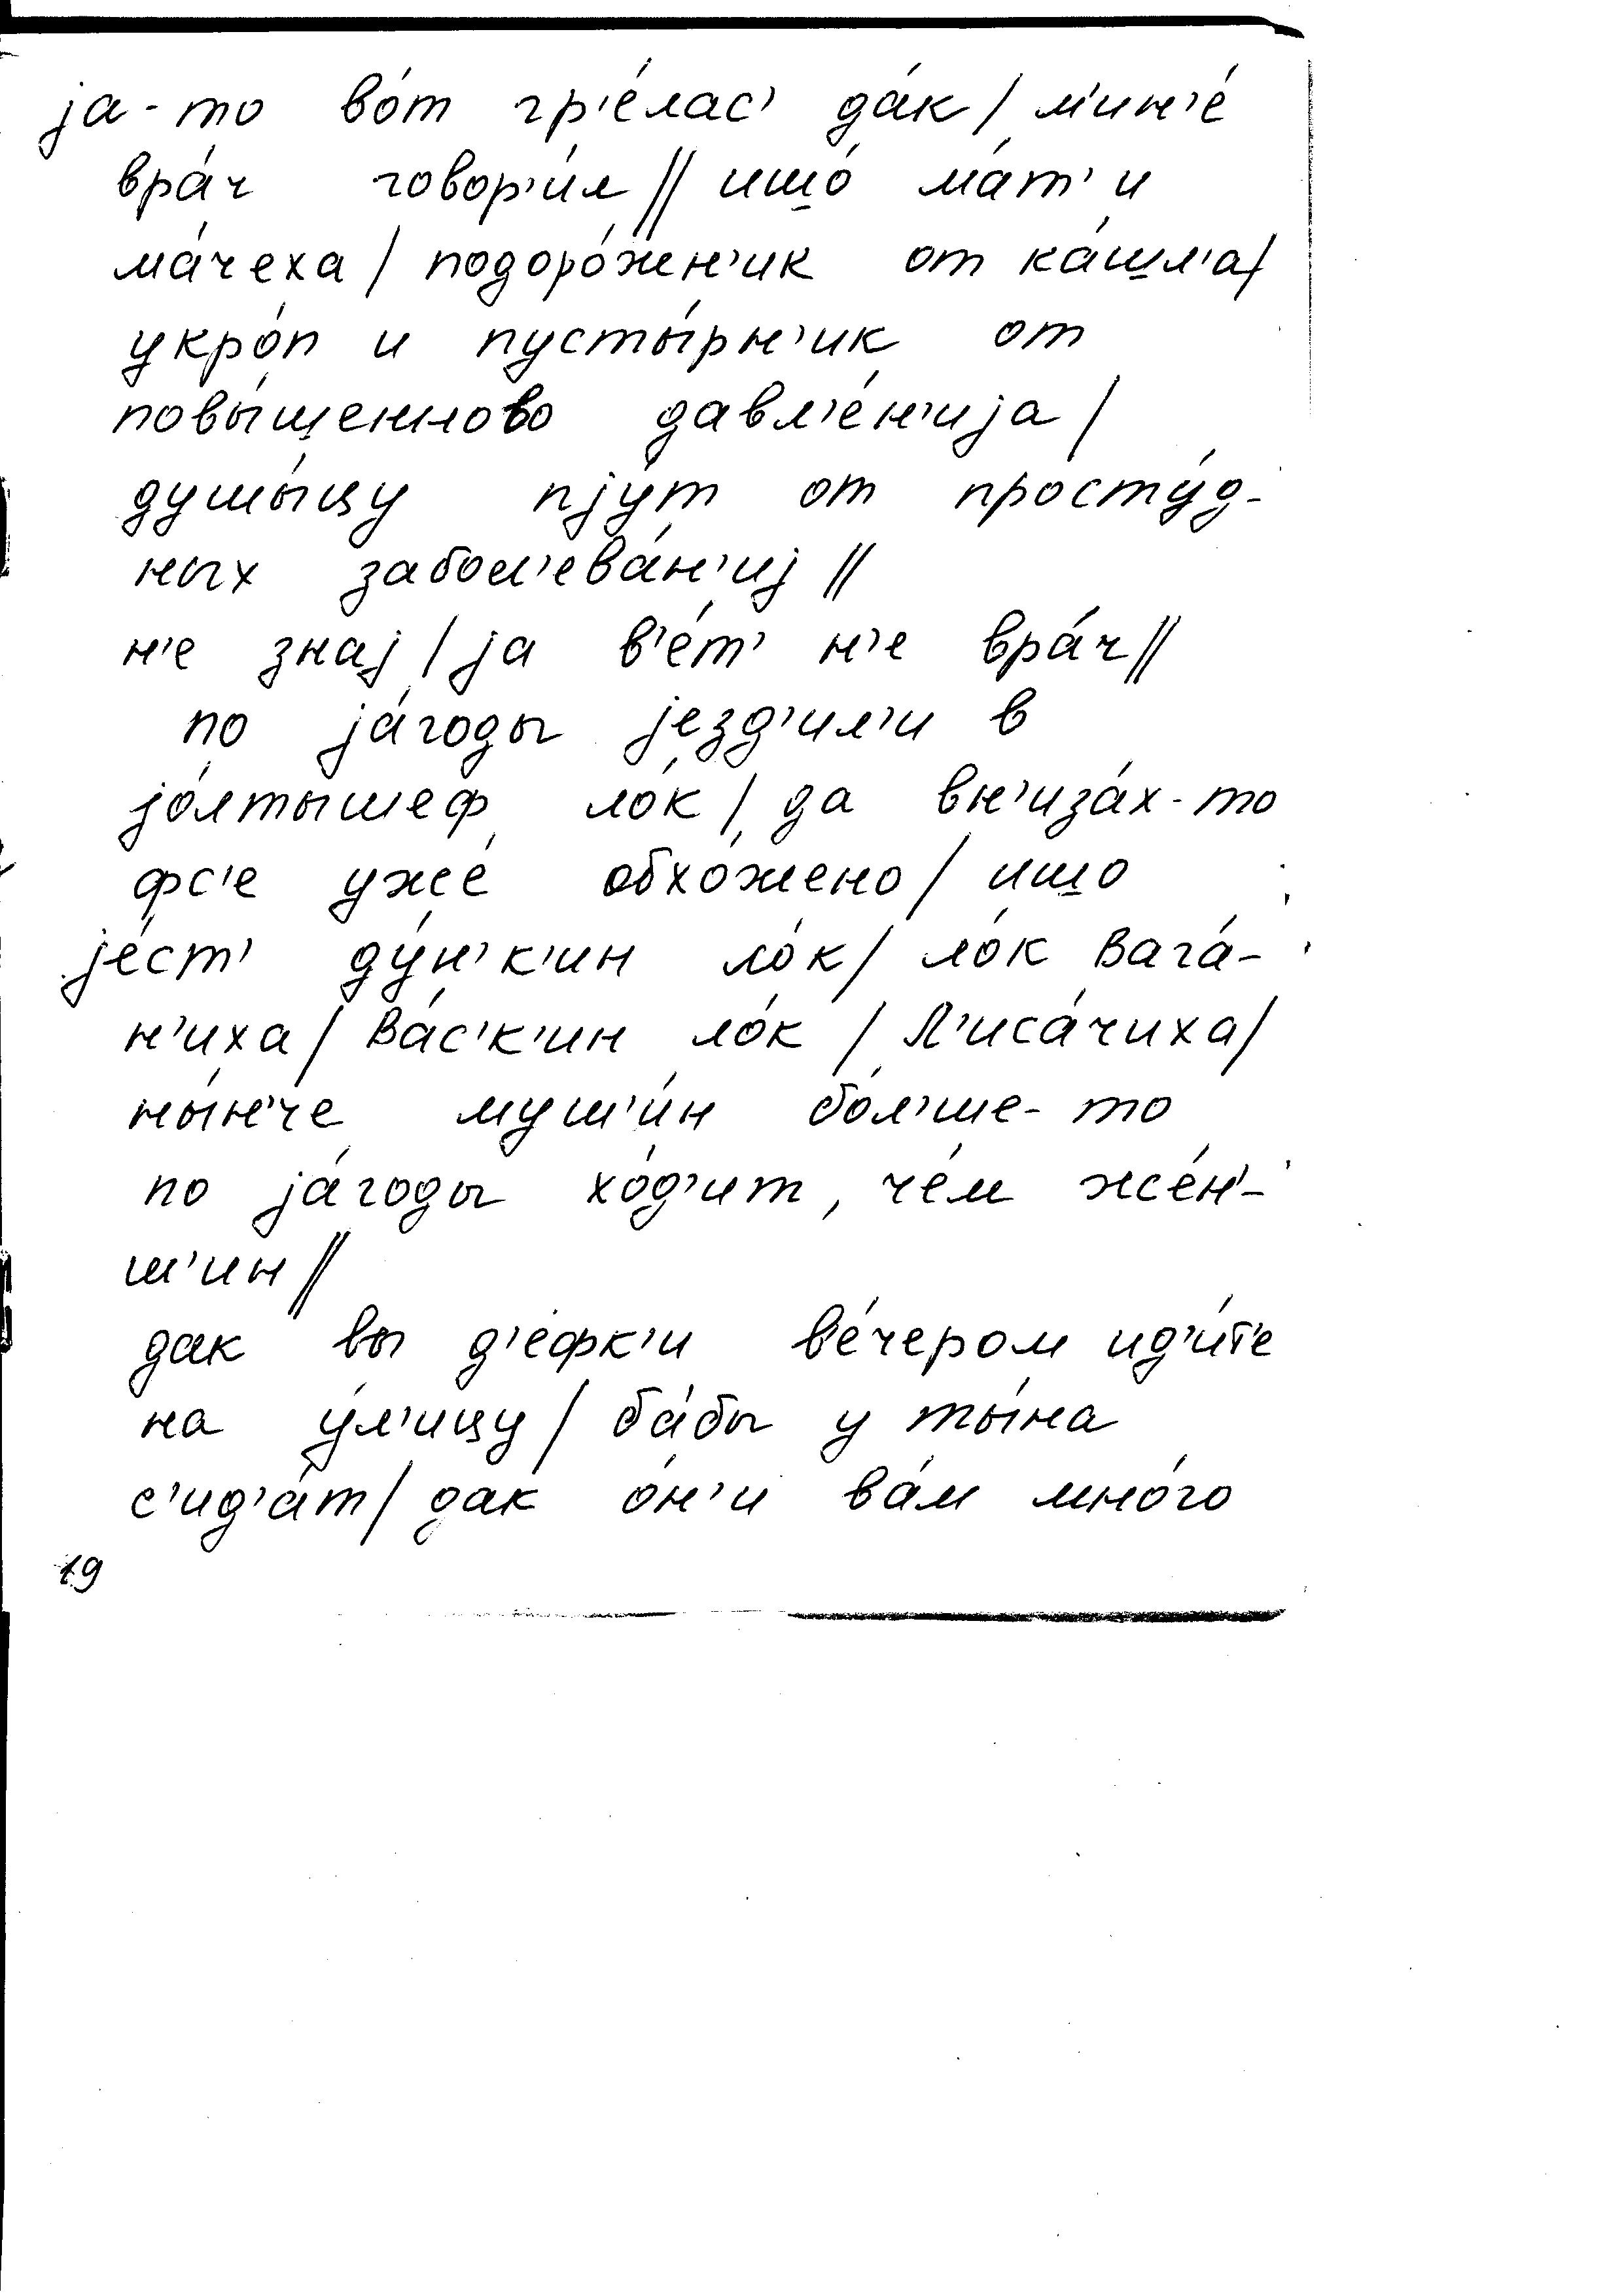 ја-то во́т гр'е́лас' да́к / м'ин'е́
вра́ч говор'и́л // ишо́ ма́т' и
ма́чеха / подоро́жен'ик от ка́шл'а /
укро́п и пусты́рн'ик от
повы́шенново давл'е́н'ија /
душы́цу пју́т от просту́д-
ных забол'ева́н'иј //
н'е знај / ја в'е́т' н'е вра́ч //
по ја́годы језд'ил'и в
јо́лтышеф ло́к / да вн'иза́х-то
фс'е уже́ обхо́жено / ишо
је́ст' ду́н'к'ин ло́к / ло́к Вага́-
н'иха / Ва́с'к'ин ло́к / Л'иса́чиха /
ны́н'че муш'и́н бо́л'ше-то
по ја́годы хо́д'ит, че́м же́н'-
ш'ин //
дак вы д'е́фк'и в'е́чером ид'и́т'е
на у́л'ицу / ба́бы у ты́на
с'ид'а́т / дак о́н'и ва́м мно́го
19